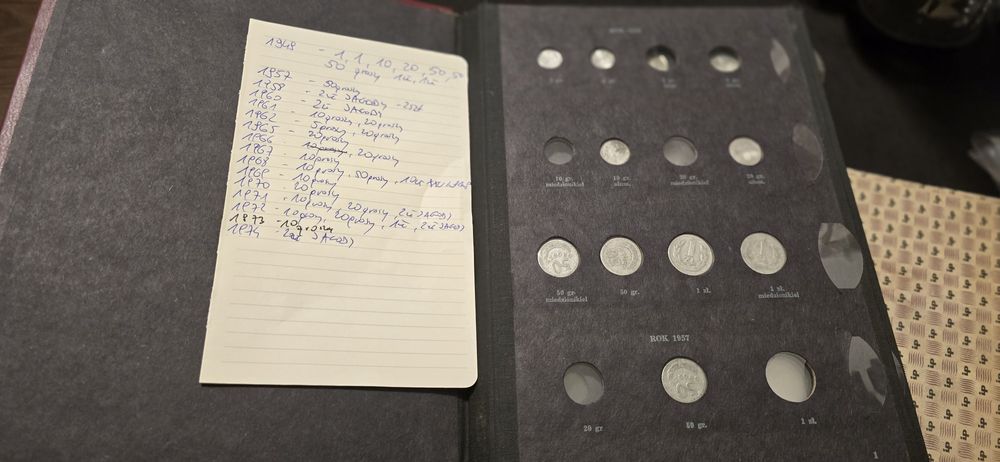 1949 - 1, 1, 10, 20, 50, 50
50 groszy 1zł, 1zł
1957 - 50groszy
1958 - 2zł JAGODY - 25zł
1960 - 2zł JAGODY
1961 - 10groszy, 20groszy
1962 - 5groszy, 20groszy
1965 - 20groszy
1966 - 20groszy
1967 - 10groszy
1968 - 10groszy, 50groszy, 10zł
1969 - 10groszy
1970 - 20groszy
1971 - 10groszy, 20groszy, 2zł JAGODY
1972 - 10groszy, 20groszy, 1zł, 2zł JAGODY
1973 - 10groszy
1974 - 2zł JAGODY
10 gr.
miedzionikiel
10 gr.
alum.
20 gr.
miedzionikiel
20 gr.
alum.
50 gr.
miedzionikiel
50 gr.
1 zł.
1 zł.
miedzionikiel
ROK 1957
20 gr
50 gr.
1 zł.
1
ip